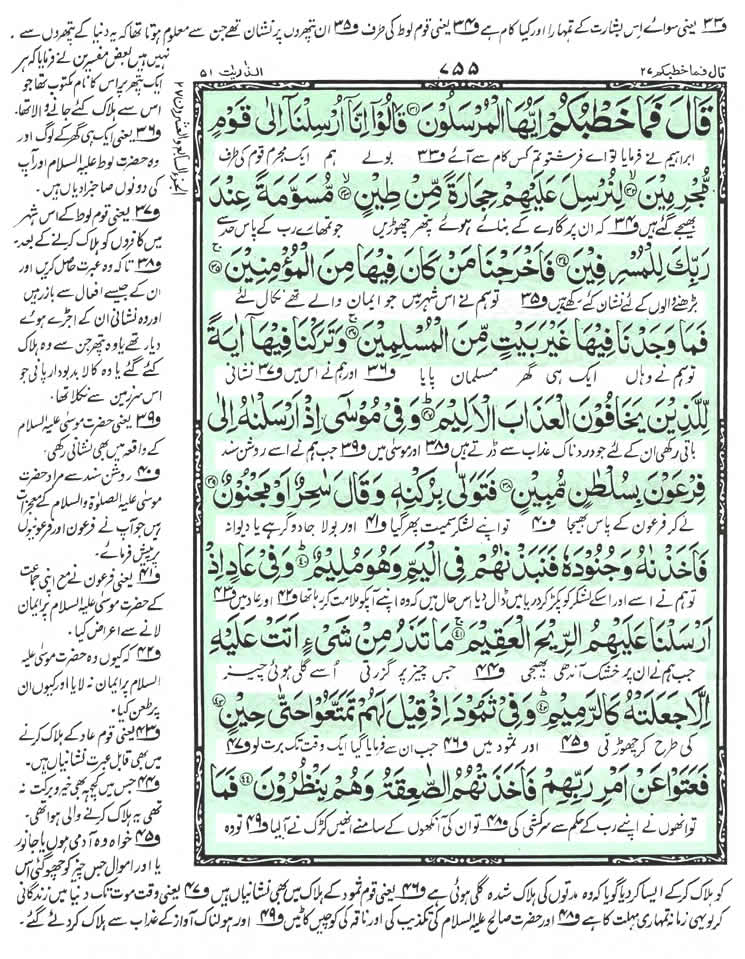 و۳۳ یعنی سوائے اس بشارت کے تمہارا اور کیا کام ہے و۳۴ یعنی قوم لوط کی طرف و۳۵ ان پتھروں پر نشان تھے جن سے معلوم ہوتا تھا کہ یہ دنیا کے پتھروں سے
قال فما خطبکم ۲۷
۷۵۵
الذّٰریٰت ۵۱
قَالَ فَمَا خَطْبُكُمْ اَيُّهَا الْمُرْسَلُوْنَ ۝۳۱ قَالُوْۤا اِنَّاۤ اُرْسِلْنَاۤ اِلٰى قَوْمٍ
ابراہیم نے فرمایا تو اے فرشتو تم کس کام سے آئے و۳۳ بولے ہم ایک مجرم قوم کی طرف
مُّجْرِمِيْنَ ۝۳۲ لِنُرْسِلَ عَلَيْهِمْ حِجَارَةً مِّنْ طِيْنٍ ۝۳۳ مُّسَوَّمَةً عِنْدَ
بھیجے گئے ہیں و۳۴ کہ ان پر گارے کے بنائے ہوئے پتھر چھوڑیں جو تمہارے رب کے پاس حد سے
رَبِّكَ لِلْمُسْرِفِيْنَ ۝۳۴ فَاَخْرَجْنَا مَنْ كَانَ فِيْهَا مِنَ الْمُؤْمِنِيْنَ ۝۳۵
بڑھنے والوں کے لئے نشان کئے رکھے ہیں و۳۵ تو ہم نے اس شہر میں جو ایمان والے تھے نکال لئے
فَمَا وَجَدْنَا فِيْهَا غَيْرَ بَيْتٍ مِّنَ الْمُسْلِمِيْنَ ۝۳۶ وَتَرَكْنَا فِيْهَاۤ اٰيَةً
تو ہم نے وہاں ایک ہی گھر مسلمان پایا و۳۶ اور ہم نے اس میں و۳۷ نشانی
لِّلَّذِيْنَ يَخَافُوْنَ الْعَذَابَ الْاَلِيْمَ ۝۳۷ وَفِيْ مُوْسٰۤى اِذْ اَرْسَلْنٰهُ اِلٰى
باقی رکھی ان کے لئے جو دردناک عذاب سے ڈرتے ہیں و۳۸ اور موسیٰ میں و۳۹ جب ہم نے اسے روشن سند
فِرْعَوْنَ بِسُلْطٰنٍ مُّبِيْنٍ ۝۳۸ فَتَوَلّٰى بِرُكْنِهٖ وَقَالَ سٰحِرٌ اَوْ مَجْنُوْنٌ ۝۳۹
لے کر فرعون کے پاس بھیجا و۴۰ تو اپنے لشکر سمیت پھر گیا و۴۱ اور بولا جادوگر ہے یا دیوانہ
فَاَخَذْنٰهُ وَجُنُوْدَهٗ فَنَبَذْنٰهُمْ فِي الْيَمِّ وَهُوَ مُلِيْمٌ ۝۴۰ وَفِيْ عَادٍ اِذْ
تو ہم نے اسے اور اسکے لشکر کو پکڑ کر دریا میں ڈال دیا اس حال میں کہ وہ اپنے آپکو ملامت کر رہا تھا و۴۲ اور عاد میں و۴۳
اَرْسَلْنَا عَلَيْهِمُ الرِّيْحَ الْعَقِيْمَ ۝۴۱ مَا تَذَرُ مِنْ شَيْءٍ اَتَتْ عَلَيْهِ
جب ہم نے ان پر خشک آندھی بھیجی و۴۴ جس چیز پر گزرتی اسے گلی ہوئی چیز
اِلَّا جَعَلَتْهُ كَالرَّمِيْمِ ۝۴۲ وَفِيْ ثَمُوْدَ اِذْ قِيْلَ لَهُمْ تَمَتَّعُوْا حَتّٰى حِيْنٍ ۝۴۳
کی طرح کر چھوڑتی و۴۵ اور ثمود میں و۴۶ جب ان سے فرمایا گیا ایک وقت تک برت لو و۴۷
فَعَتَوْا عَنْ اَمْرِ رَبِّهِمْ فَاَخَذَتْهُمُ الصّٰعِقَةُ وَهُمْ يَنْظُرُوْنَ ۝۴۴ فَمَا
تو انھوں نے اپنے رب کے حکم سے سرکشی کی و۴۸ تو ان کی آنکھوں کے سامنے انھیں کڑک نے آلیا و۴۹ تو وہ
الجزء السابع والعشرون ۲۷
نہیں ہیں بعض مفسرین نے فرمایا کہ ہر
ایک پتھر پر اس کا نام مکتوب تھا جو
اس سے ہلاک کئے جانے والا تھا،
و۳۶ یعنی ایک ہی گھر کے لوگ اور
وہ حضرت لوط علیہ السلام اور آپ
کی دونوں صاحبزادیاں ہیں۔
و۳۷ یعنی قوم لوط کے اس شہر
میں کافروں کو ہلاک کرنے کے بعد۔
و۳۸ تاکہ وہ عبرت حاصل کریں اور
ان کے جیسے افعال سے باز رہیں
اور وہ نشانی ان کے اجڑے ہوئے
دیار تھے یا وہ پتھر جن سے وہ ہلاک
کئے گئے یا وہ کالا بدبودار پانی جو
اس سرزمین سے نکلا تھا۔
و۳۹ یعنی حضرت موسیٰ علیہ السلام
کے واقعہ میں بھی نشانی رکھی۔
و۴۰ روشن سند سے مراد حضرت
موسیٰ علیہ الصلوٰۃ والسلام کے معجزات
ہیں جو آپ نے فرعون اور فرعونیوں
پر پیش فرمائے۔
و۴۱ یعنی فرعون نے مع اپنی جماعت
کے حضرت موسیٰ علیہ السلام پر ایمان
لانے سے اعراض کیا۔
و۴۲ کہ کیوں وہ حضرت موسیٰ علیہ
السلام پر ایمان نہ لایا اور کیوں ان
پر طعن کیا۔
و۴۳ یعنی قوم عاد کے ہلاک کرنے
میں بھی قابل عبرت نشانیاں ہیں۔
و۴۴ جس میں کچھ بھی خیر و برکت نہ
تھی یہ ہلاک کرنے والی ہوا تھی۔
و۴۵ خواہ وہ آدمی ہوں یا جانور
یا اور اموال جس چیز کو چھو گئی اس
کو ہلاک کر کے ایسا کر دیا گویا کہ وہ مدتوں کی ہلاک شدہ گلی ہوئی ہے و۴۶ یعنی قوم ثمود کے ہلاک میں بھی نشانیاں ہیں و۴۷ یعنی وقت موت تک دنیا میں زندگانی
کر لو یہی زمانہ تمہاری مہلت کا ہے و۴۸ اور حضرت صالح علیہ السلام کی تکذیب کی اور ناقہ کی کوچیں کاٹیں و۴۹ اور ہولناک آواز کے عذاب سے ہلاک کر دئے گئے۔